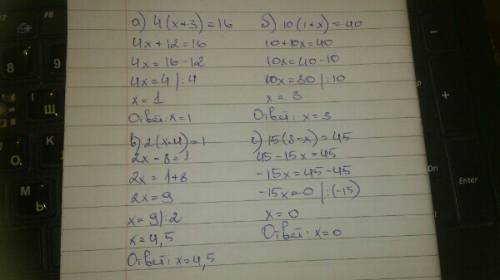 а) 4(x+3)=16
4x+12=16
4x=16-12
4x=4 |:4
x=1
Ответ: x=1
б) 10(1+x)=40
10+10x=40
10x=40-10
10x=30 |:10
x=3
Ответ: x=3
в) 2(x-4)=1
2x-8=1
2x=1+8
2x=9
x=9|:2
x=4,5
Ответ: x=4,5
г) 15(3-x)=45
45-15x=45
-15x=45-45
-15x=0 |:(-15)
x=0
Ответ: x=0
8
9
5
6
Ctrl
PrtSc